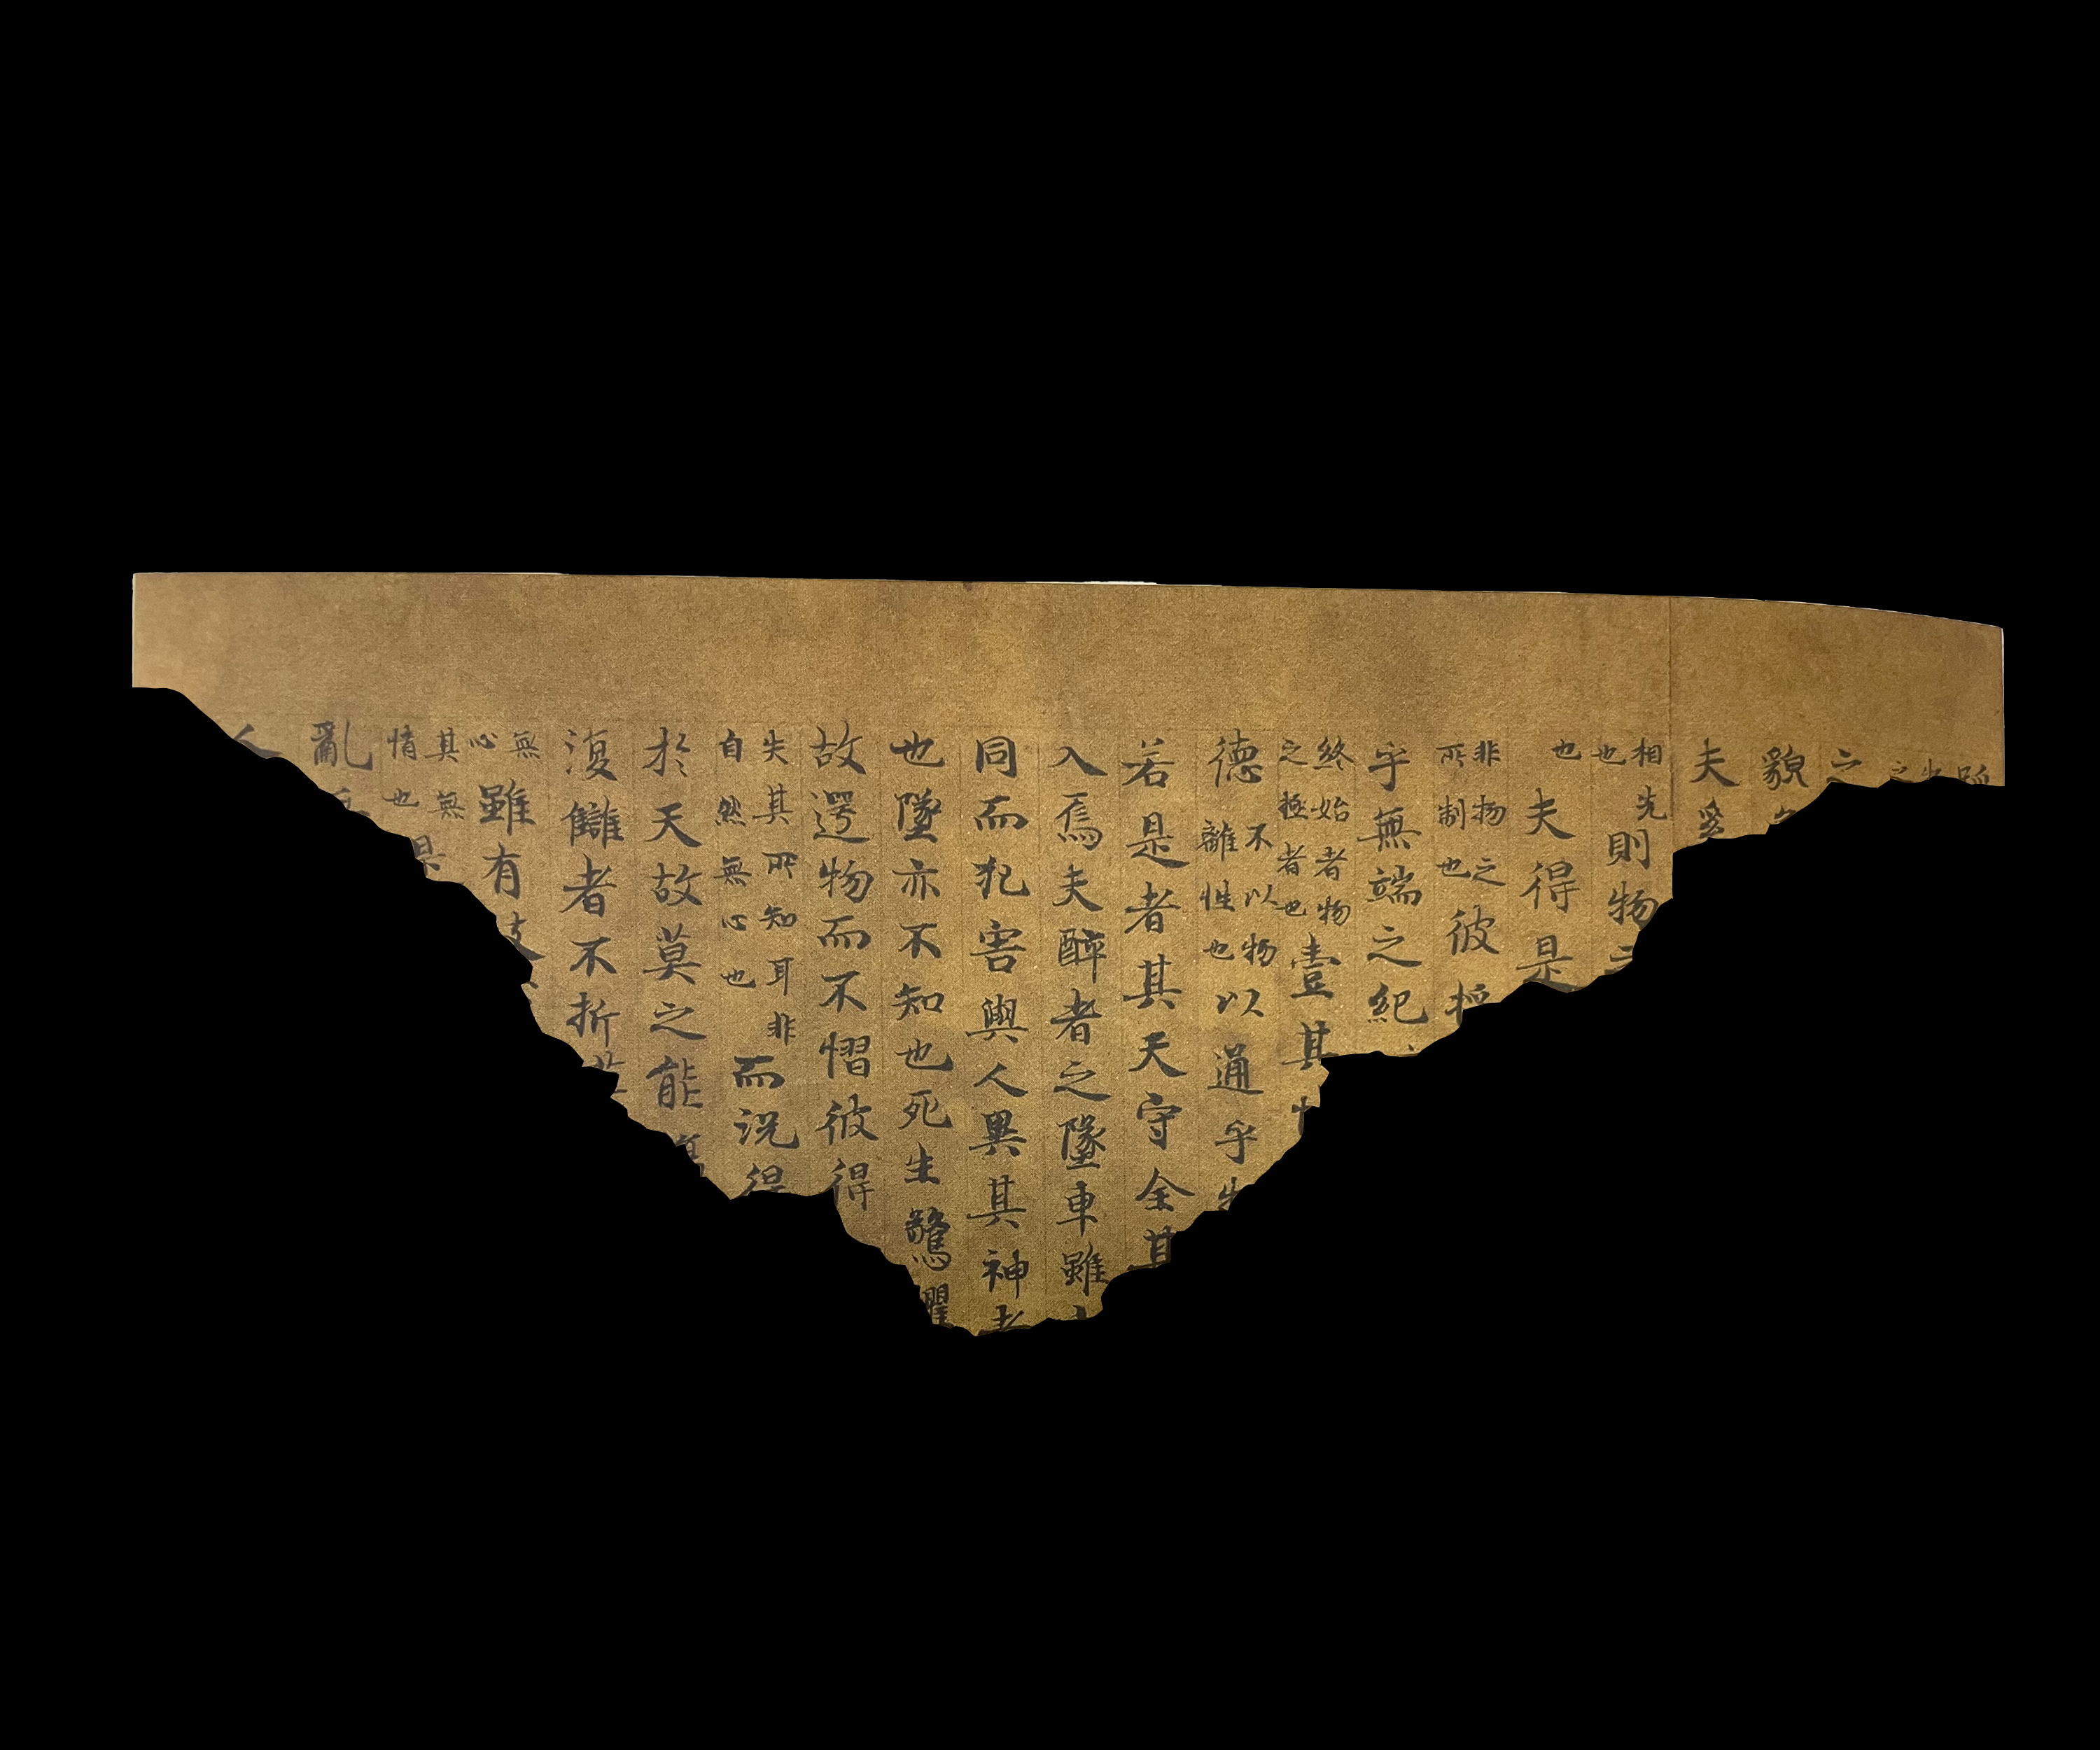 貌
夫
相先也則物
也夫得是
非物之所制也彼
乎無端之紀
終始者物之極者也壹其
德不以物離性也以通乎
若是者其天守全其
入焉夫醉者之墜車雖
同而犯害與人異其神
也墜亦不知也死生驚懼
故遻物而不慴彼得
失其所知耳非自然無心也而況得
於天故莫之能
復讎者不折
無心雖有
其無情也是
亂